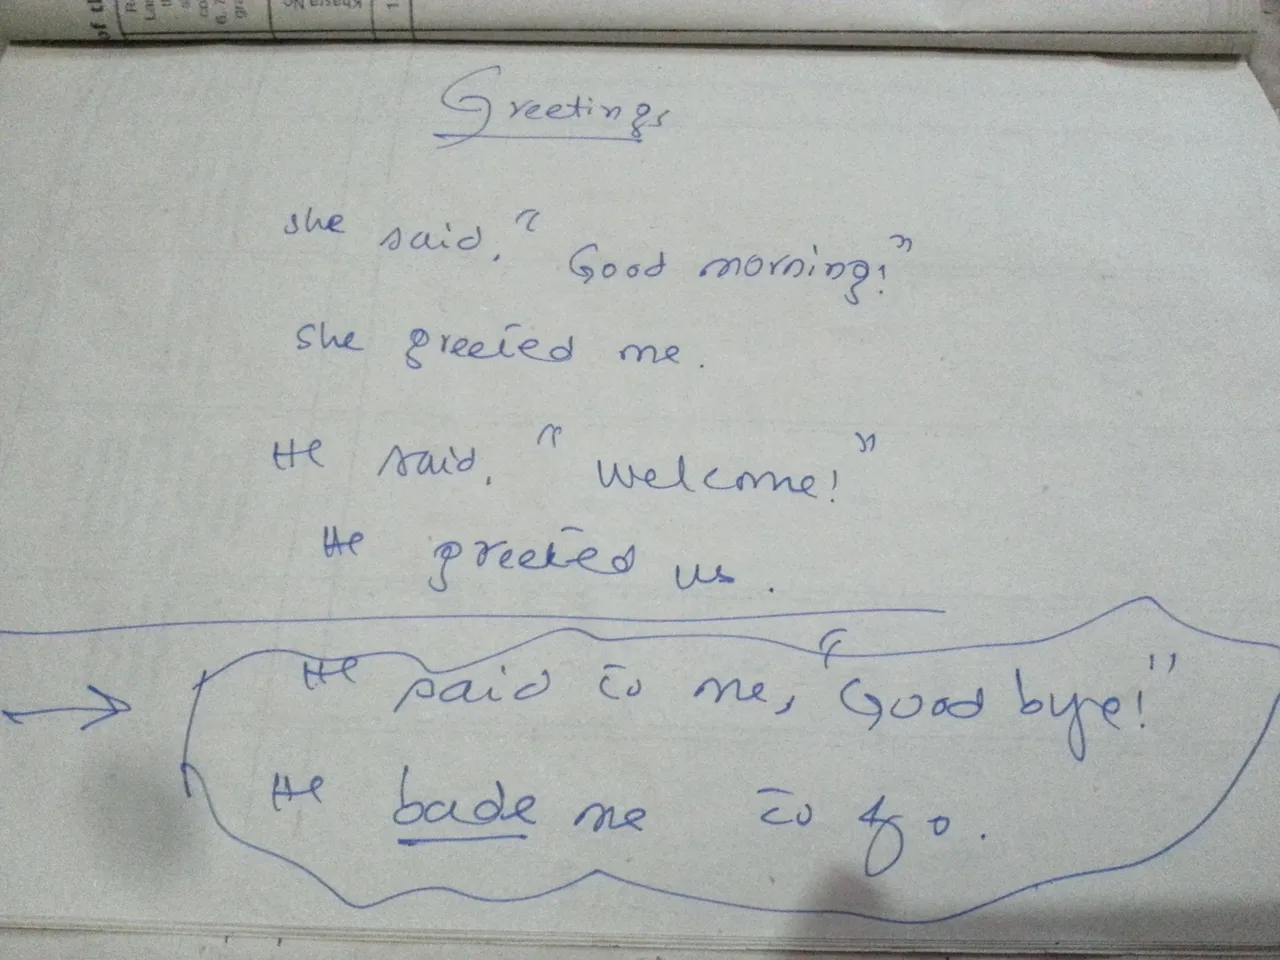 Greetings
she said, "Good morning!"
she greeted me.
He said, "Welcome!"
He greeted us.
He said to me, "Good bye!"
He bade me to go.